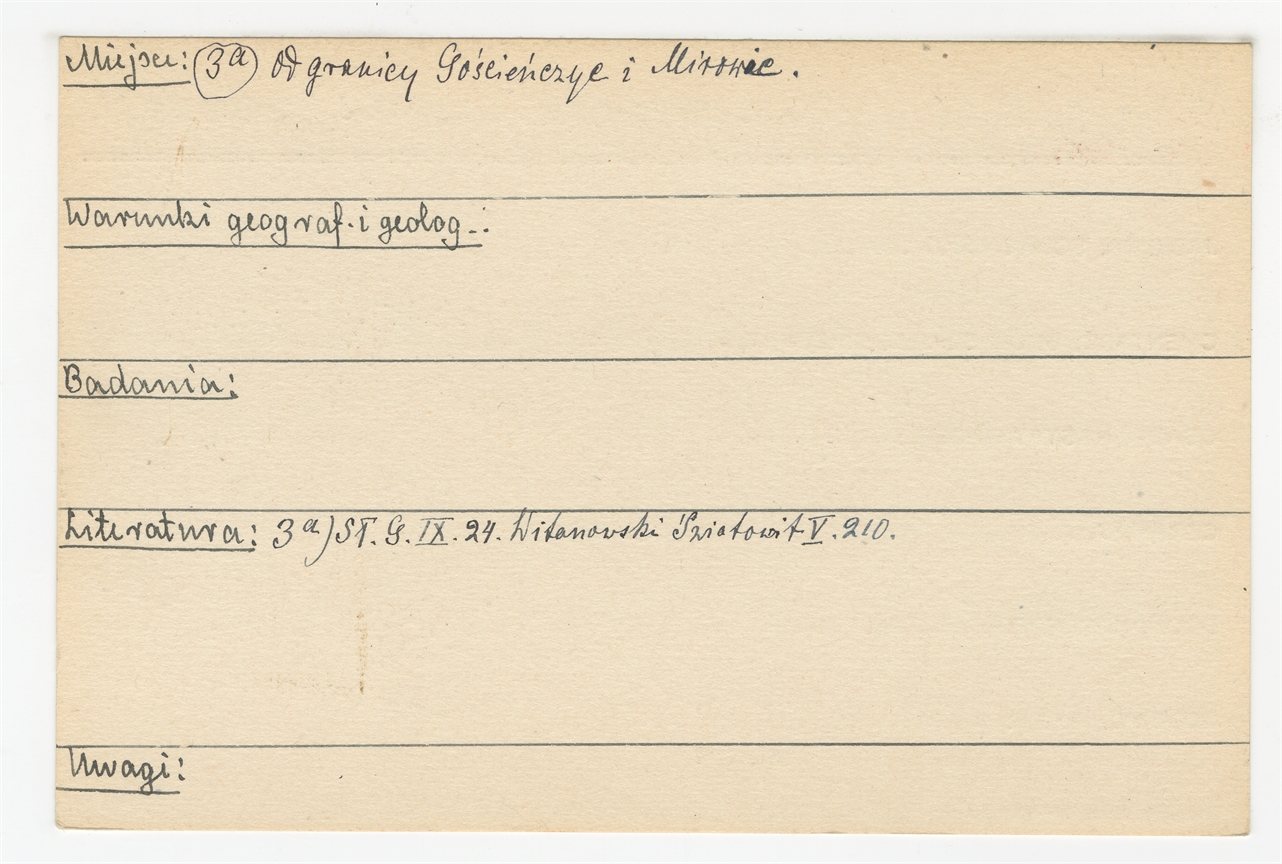 Miejsce: 3a Od granicy Gościeńczyc i Mirowic.
Warunki geograf. i geolog..:
Badania:
Literatura: 3a) SŁ. G. IX. 24. Witanowski Światowit V. 210.
Uwagi: